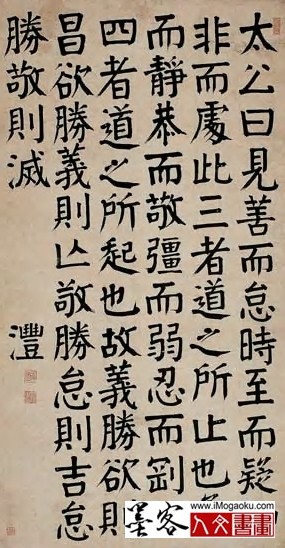 太公曰見善而怠時至而疑
非而處此三者道之所止也
而靜恭而敬彊而弱忍而剛
四者道之所起也故義勝欲則
昌欲勝義則亾敬勝怠則吉怠
勝敬則滅
灃
墨客
www.iMogaoku.com
人文書畫